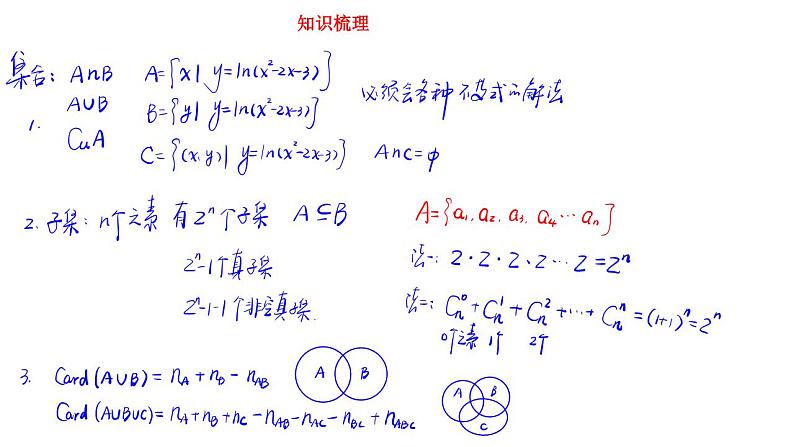 知识梳理
集合: A∩B A={x| y=ln(x²-2x-3)}
A∪B B={y| y=ln(x²-2x-3)} 必须会各种不等式的解法
1. CuA C={(x,y)| y=ln(x²-2x-3)} A∩C=φ
2. 子集: n个元素 有2ⁿ个子集 A⊆B A={a₁, a₂, a₃, a₄…aₙ}
2ⁿ-1个真子集 法一: 2·2·2·2…2=2ⁿ
2ⁿ-1-1个非空真子集. 法二: Cₙ⁰+Cₙ¹+Cₙ²+…+Cₙⁿ=(1+1)ⁿ=2ⁿ
0个元素 1个 2个
3. Card(A∪B)=n_A+n_B-n_AB A B
Card(A∪B∪C)=n_A+n_B+n_C-n_AB-n_AC-n_BC+n_ABC A B C